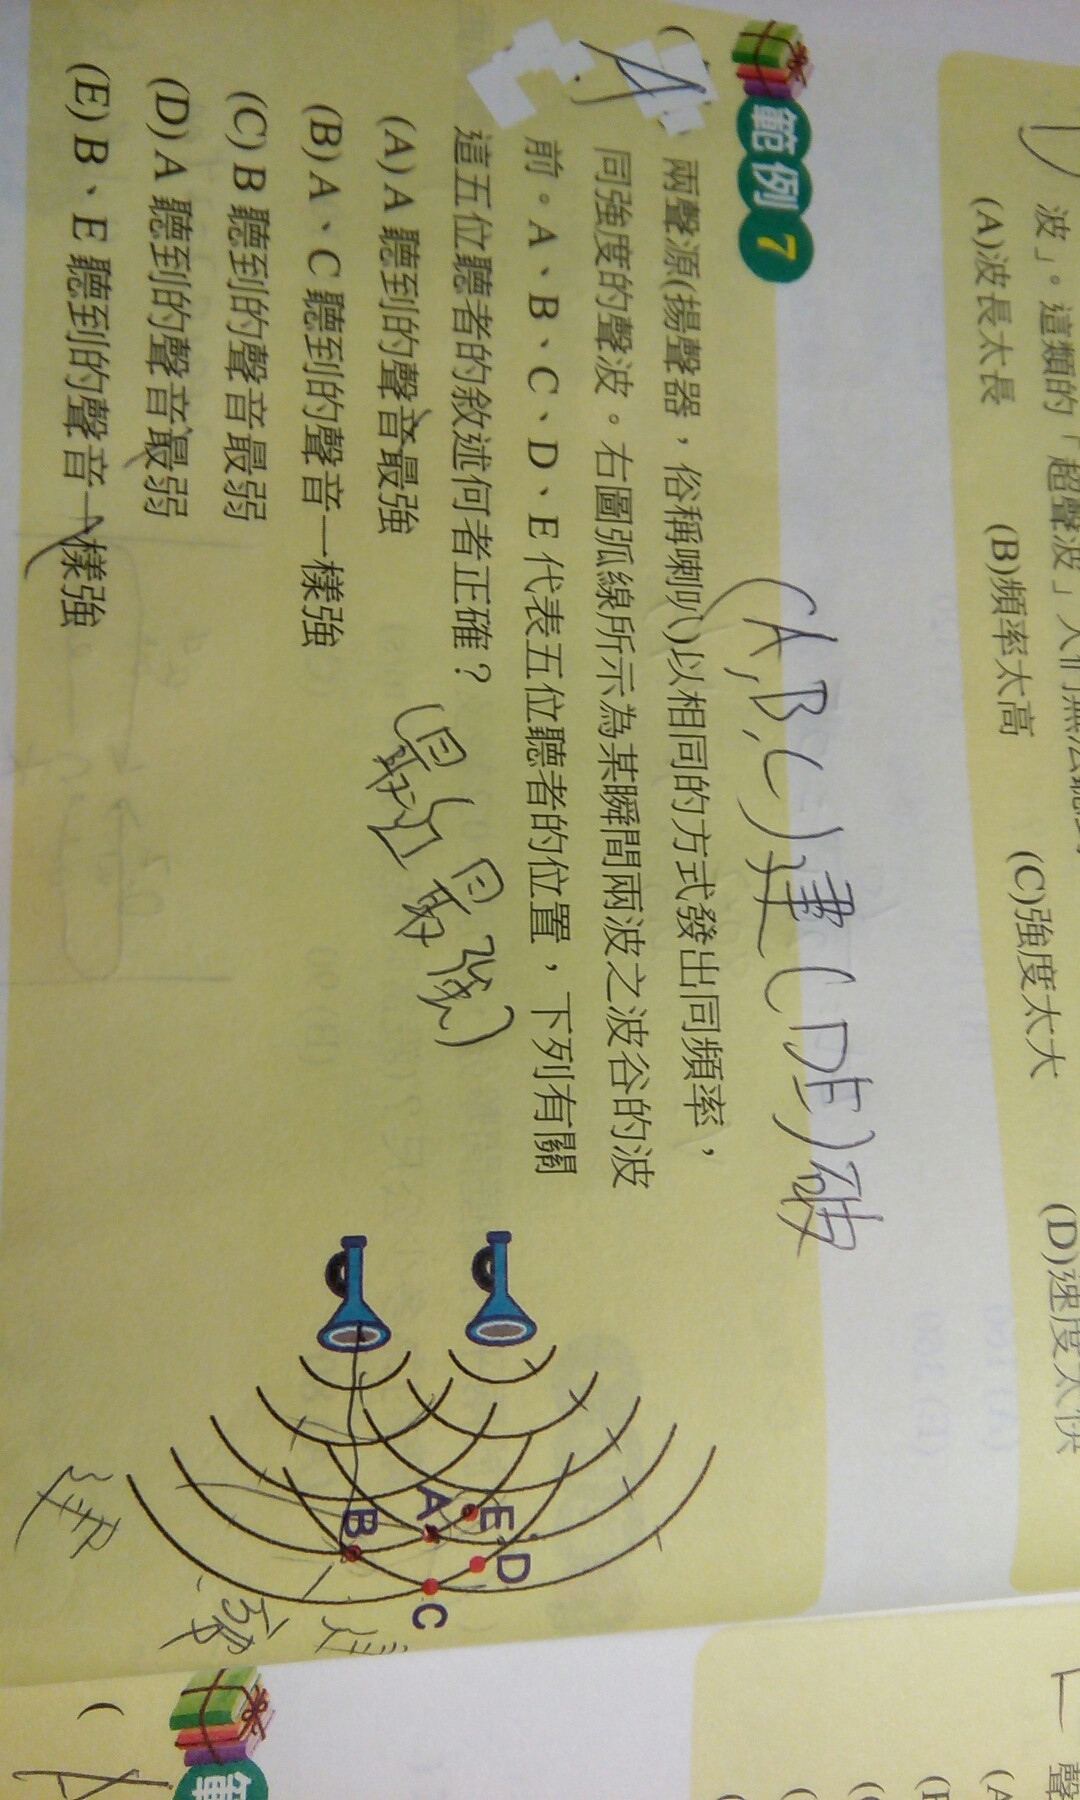 波」。這類的「超聲波」人們無法聽
(A)波長太長 (B)頻率太高 (C)強度太大 (D)速度太快
範例 7
(A,B,C)建(DE)破
( A 兩聲源(揚聲器，俗稱喇叭)以相同的方式發出同頻率，
同強度的聲波。右圖弧線所示為某瞬間兩波之波谷的波
前。A、B、C、D、E代表五位聽者的位置，下列有關
這五位聽者的敘述何者正確？
(最弱 最強)
(A) A 聽到的聲音最強
(B) A、C 聽到的聲音一樣強
(C) B 聽到的聲音最弱
(D) A 聽到的聲音最弱
(E) B、E 聽到的聲音一樣強
E
D
A
C
B
建
破
建